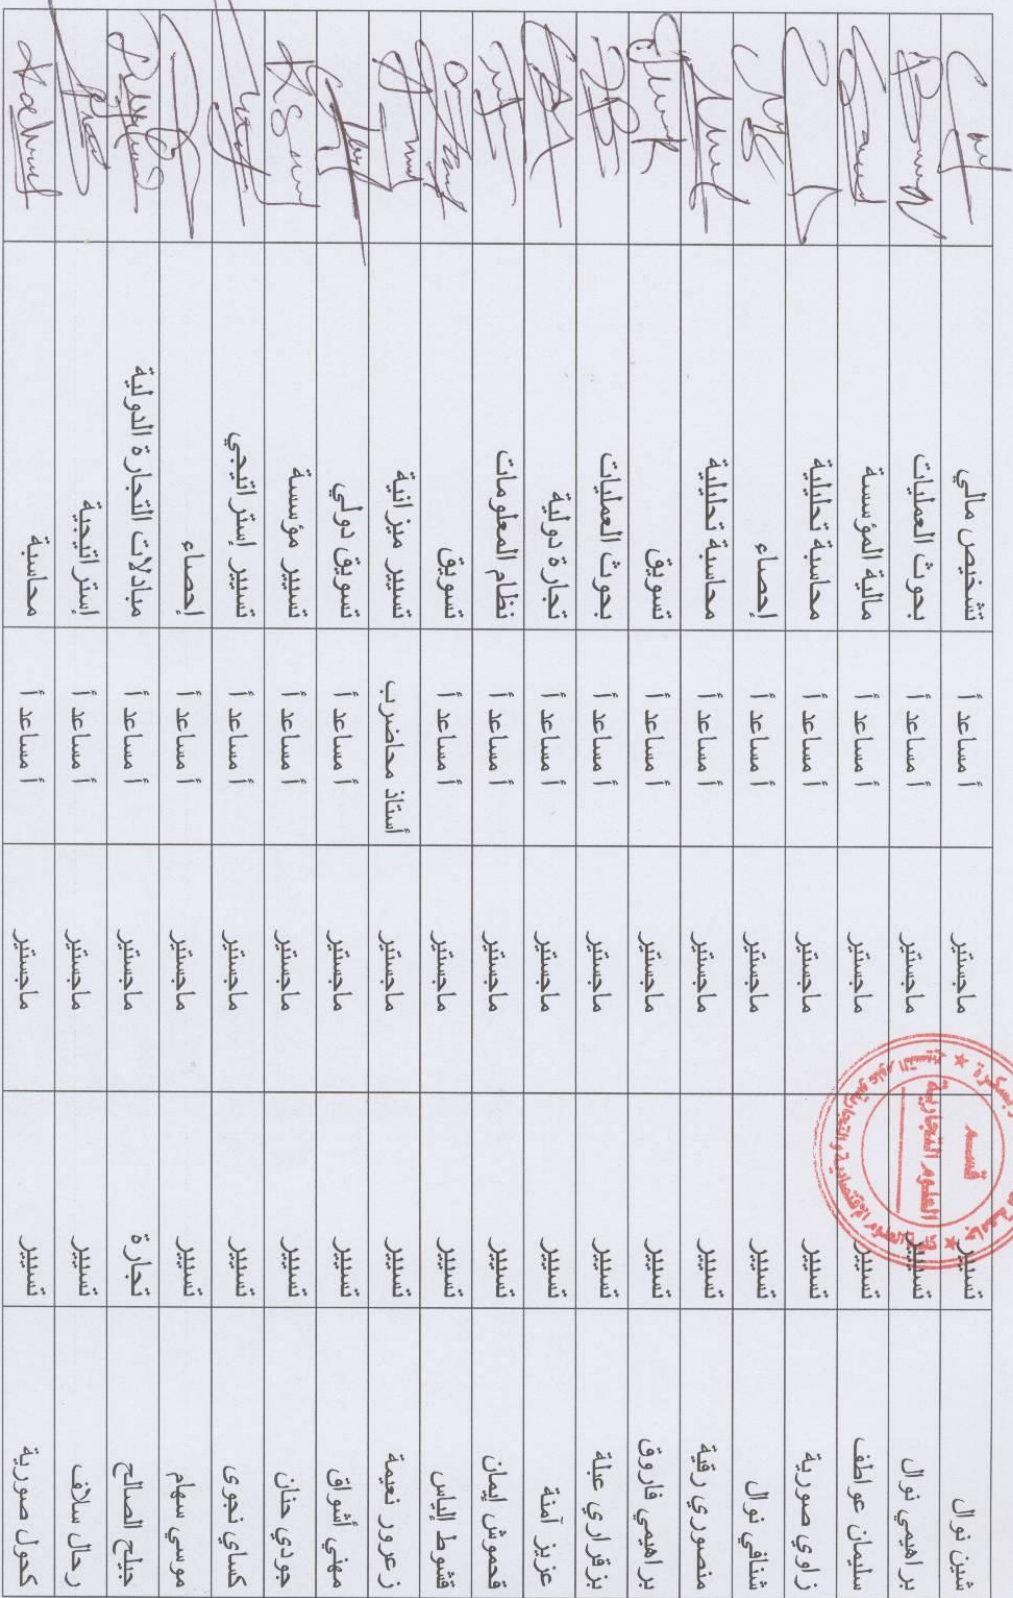 شين نوال تسيير ماجستير أ مساعد أ تشخيص مالي
براهيمي نوال تسيير ماجستير أ مساعد أ بحوث العمليات
سليمان عواطف تسيير ماجستير أ مساعد أ مالية المؤسسة
زاوي صورية تسيير ماجستير أ مساعد أ محاسبة تحليلية
شنافي نوال تسيير ماجستير أ مساعد أ إحصاء
منصوري رقية تسيير ماجستير أ مساعد أ محاسبة تحليلية
براهيمي فاروق تسيير ماجستير أ مساعد أ تسويق
بزقراري عبلة تسيير ماجستير أ مساعد أ بحوث العمليات
عزيز آمنة تسيير ماجستير أ مساعد أ تجارة دولية
قحموش إيمان تسيير ماجستير أ مساعد أ نظام المعلومات
قشوط إلياس تسيير ماجستير أ مساعد أ تسويق
زعرور نعيمة تسيير ماجستير أستاذ محاضر ب تسيير ميزانية
مهني أشواق تسيير ماجستير أ مساعد أ تسويق دولي
جودي حنان تسيير ماجستير أ مساعد أ تسيير مؤسسة
كساي نجوى تسيير ماجستير أ مساعد أ تسيير إستراتيجي
موسي سهام تسيير ماجستير أ مساعد أ إحصاء
جيلح الصالح تجارة ماجستير أ مساعد أ مبادلات التجارة الدولية
رحال سلاف تسيير ماجستير أ مساعد أ إستراتيجية
كحول صورية تسيير ماجستير أ مساعد أ محاسبة
قسم
العلوم التجارية